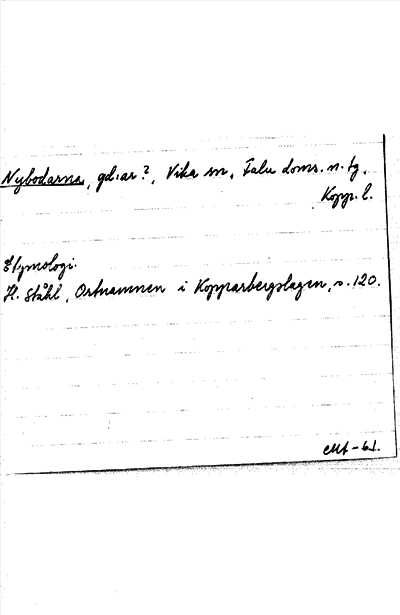 Nybodarna, gd:ar?, Vika sn, Falu doms. n. tg,
Kopp. l.
Etymologi.
H. Ståhl, Ortnamnen i Kopparbergslagen, s. 120.